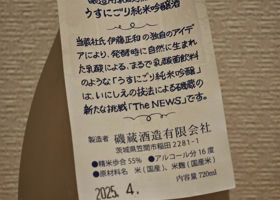 うすにごり純米吟醸酒
当蔵杜氏 伊藤正和の独自のアイデ
アにより、発酵時に自然に生まれ
た乳酸による、まるで乳酸菌飲料
のような「うすにごり純米吟醸」
は、いにしえの技法による磯蔵の
新たな挑戦「The NEWS」です。
製造者 磯蔵酒造有限会社
茨城県笠間市稲田2281-1
●精米歩合 55% ●アルコール分 16度
●原材料名 米(国産)、米麹(国産米)
内容量 720ml
2025. 4.